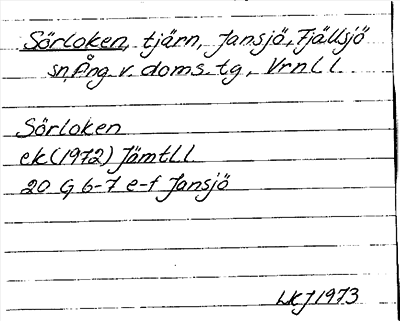 Sörloken, tjärn, Jansjö, Fjällsjö
sn, Ång. v. doms. tg, Vrnl l.
Sörloken
ek (1972) Jämtl l
20 G 6-7 e-f Jansjö
LKJ 1973